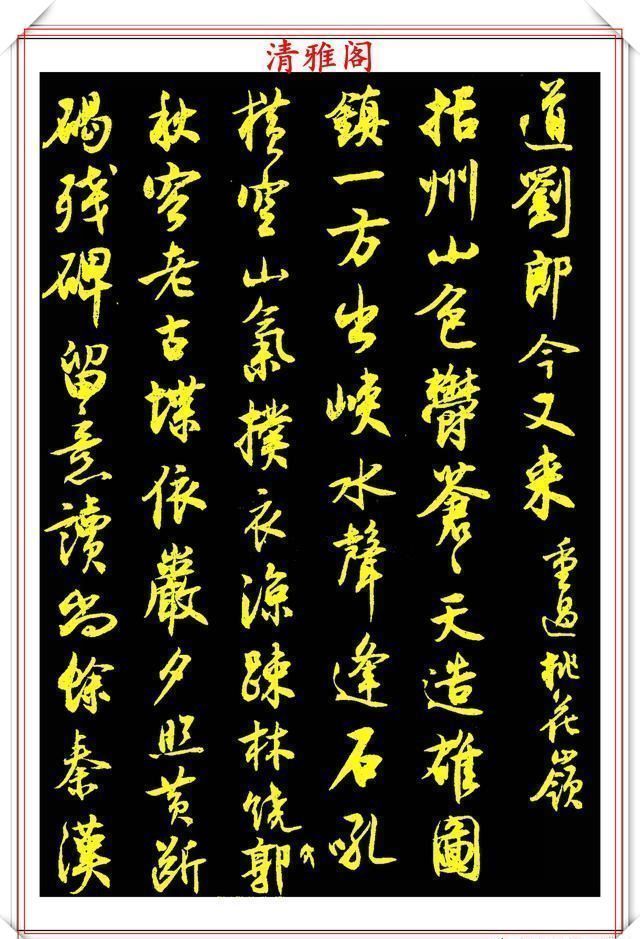 清雅阁
道劉郎今又来 重過桃花嶺
括州山色鬱蒼〻天造雄圖
鎮一方出峽水聲逢石吼
横空山氣撲衣涼疎林繞郭
秋容老古堞依巖夕照黄断
碣残碑留意讀尚餘秦漢